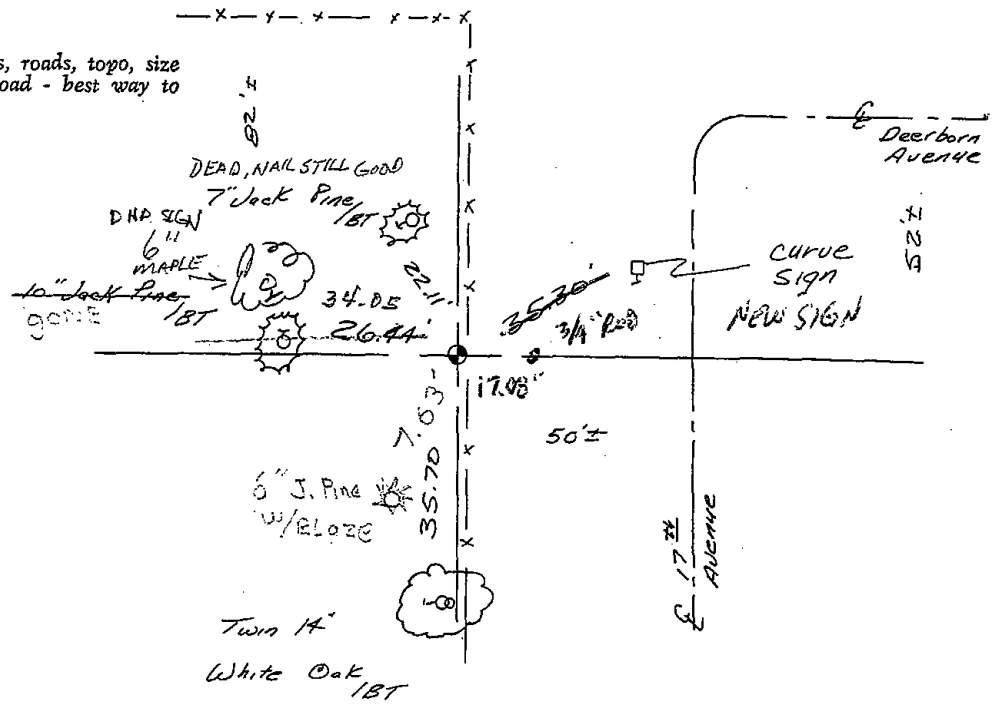 s, roads, topo, size
oad - best way to
82'±
DEAD, NAIL STILL GOOD
7" Jack Pine
/BT
DNR SIGN
6"
MAPLE
10" Jack Pine
/BT
GONE
22.11'
34.05
26.44'
35.30'
3/4" ROD
17.08"
7.63
35.70
6" J. Pine
W/BLAZE
Twin 14"
White Oak
/BT
50'±
Curve
Sign
NEW SIGN
Deerborn
Avenue
52'±
17th
Avenue